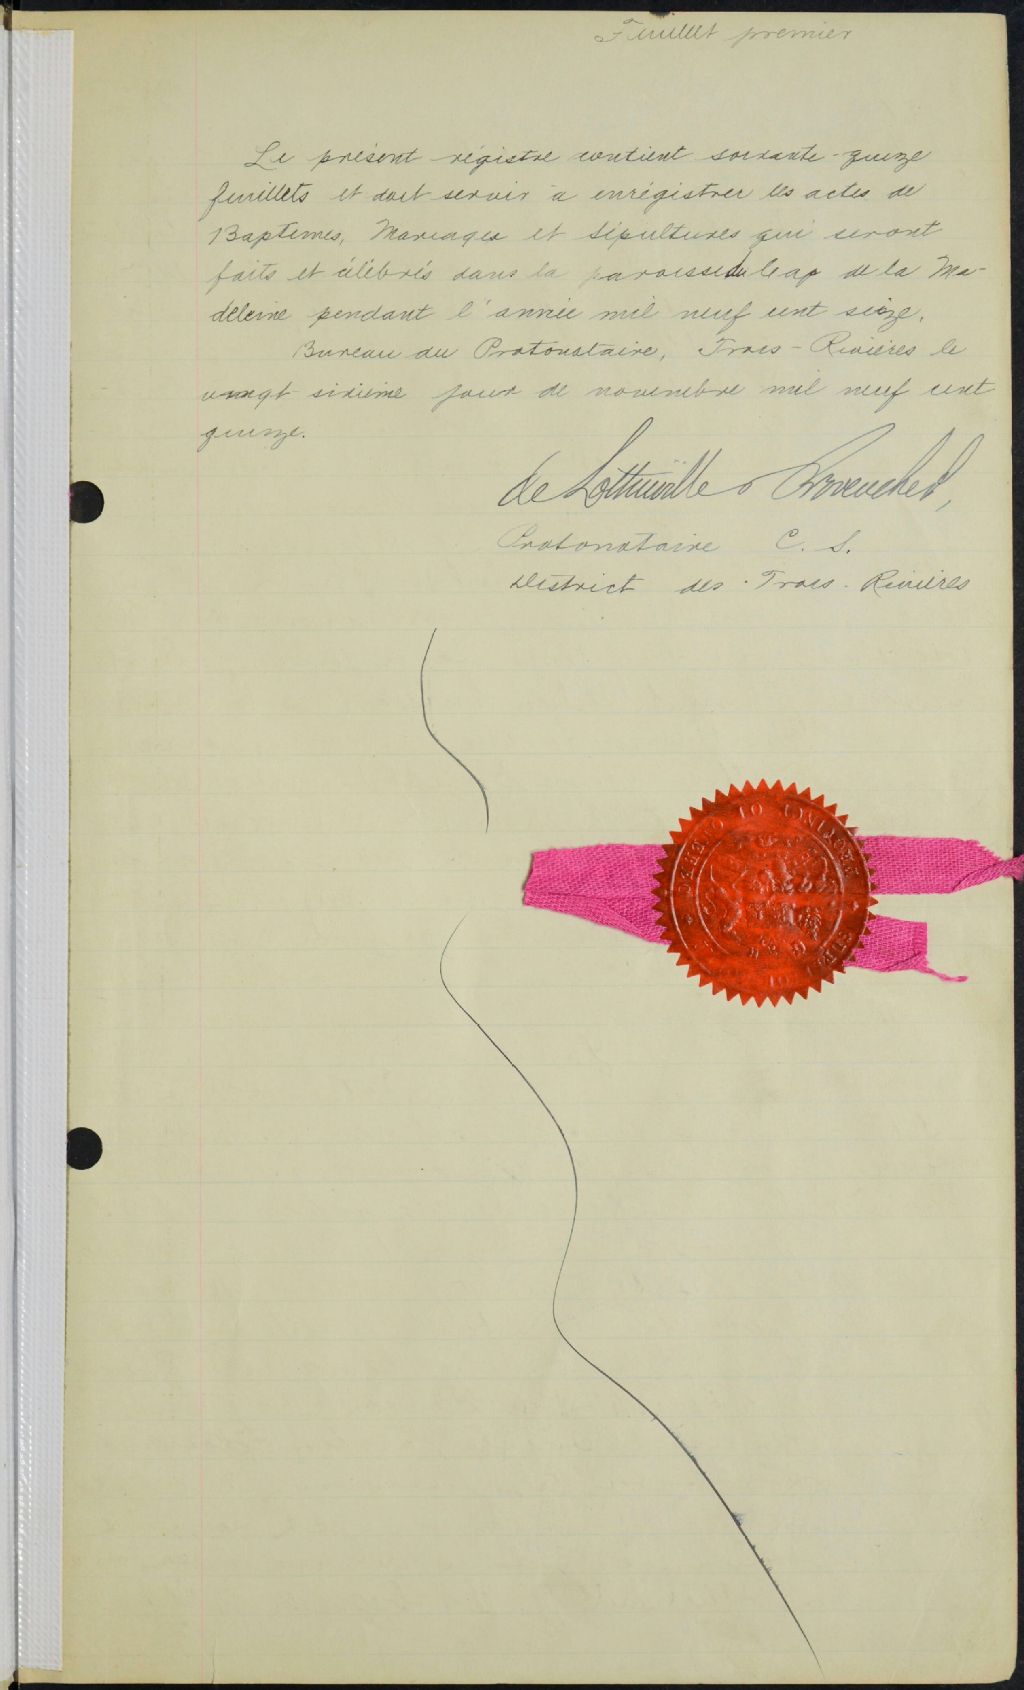 Feuillet premier
Le présent régistre contient soixante-quinze
feuillets et doit servir à enrégistrer les actes de
Baptemes, Mariages et Sépultures qui seront
faits et célébrés dans la paroisse du Cap de la Ma-
deleine pendant l'année mil neuf cent seize.
Bureau du Protonotaire, Trois-Rivières le
vingt sixième jour de novembre mil neuf cent
quinze.
de Lottinville &
Protonotaire C. S.
District des Trois-Rivières